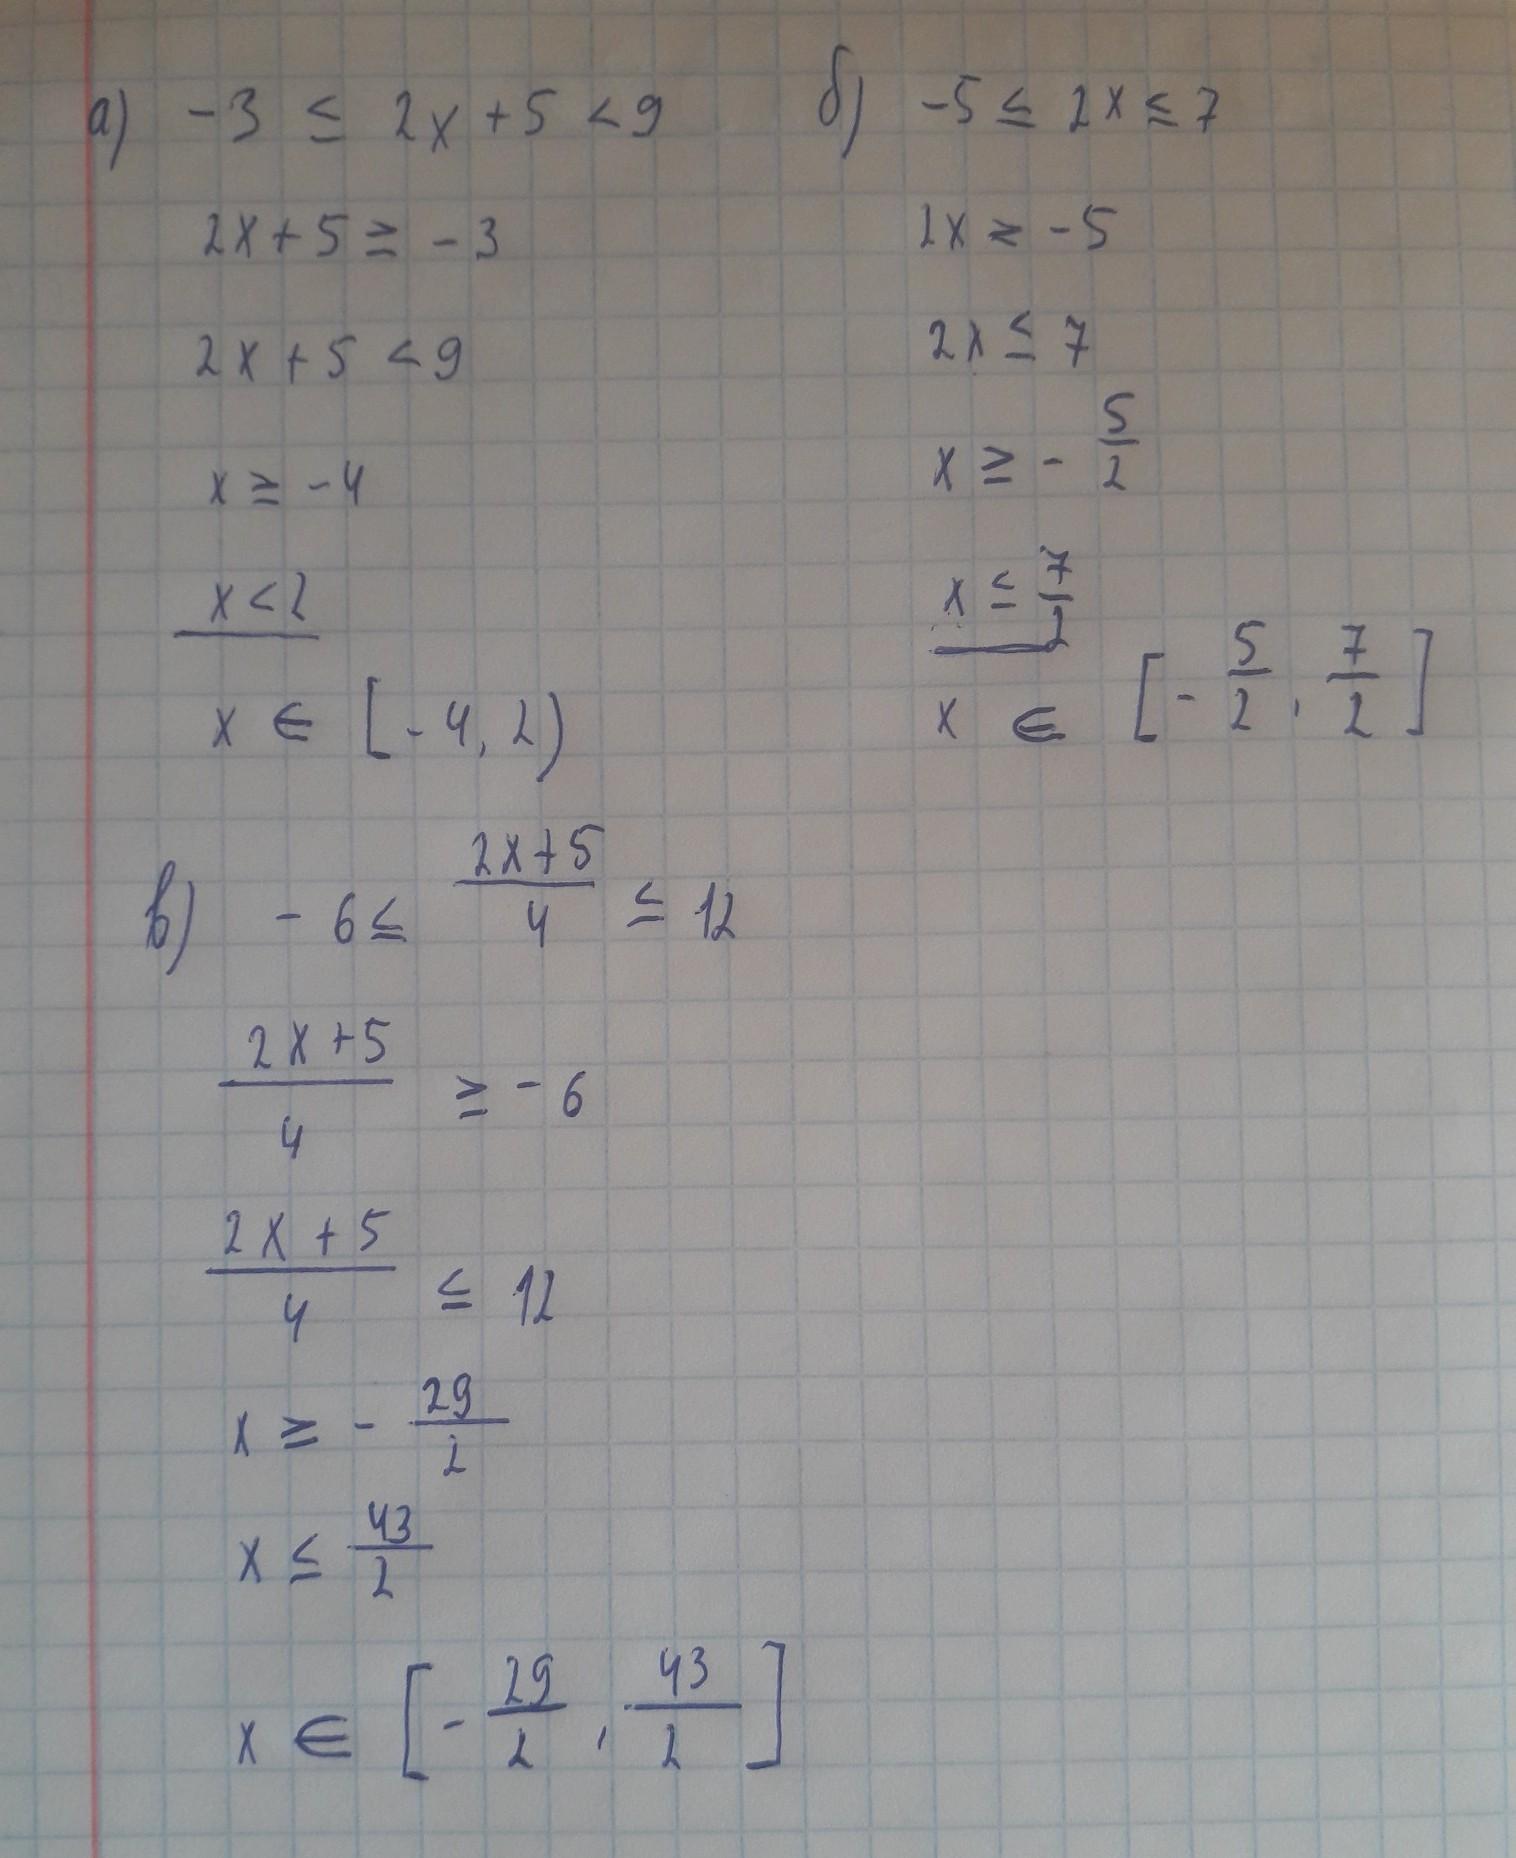 а) -3 ≤ 2x + 5 < 9
2x + 5 ≥ -3
2x + 5 < 9
x ≥ -4
x < 2
x ∈ [-4, 2)
б) -5 ≤ 2x ≤ 7
2x ≥ -5
2x ≤ 7
x ≥ - 5/2
x ≤ 7/2
x ∈ [- 5/2, 7/2]
в) -6 ≤ (2x+5)/4 ≤ 12
(2x+5)/4 ≥ -6
(2x+5)/4 ≤ 12
x ≥ - 29/2
x ≤ 43/2
x ∈ [- 29/2, 43/2]